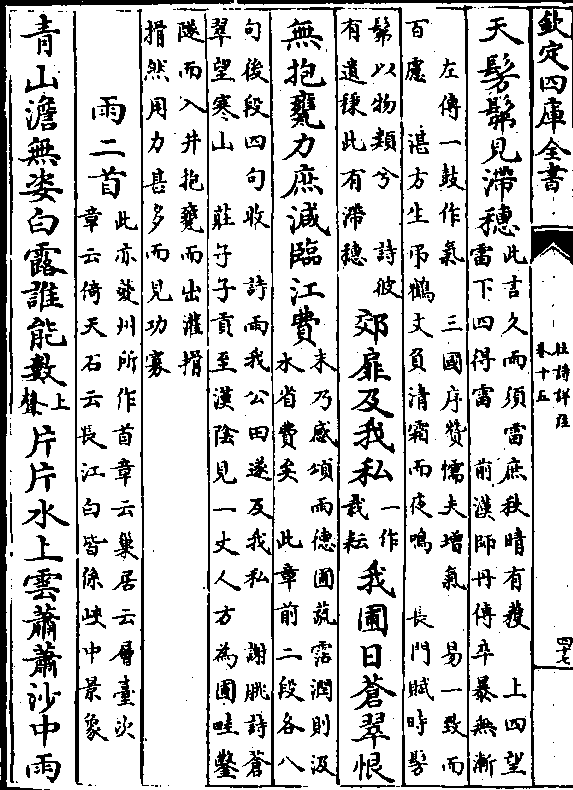 欽定四庫全書
杜詩詳注
卷十五
四十七
天髣髴見滯穗
此言久而須雷庶秋晴有穫 上四望
雷下四得雷 前漢師丹傳卒暴無漸
左傳一鼓作氣 三國序贊懦夫增氣 易一致而
百慮 湛方生弔鶴文負清霜而夜鳴 長門賦時髣
髴以物類兮 詩彼
有遺秉此有滯穗
郊扉及我私
一作
栽耘
我圃日蒼翠恨
無抱甕力庶減臨江費
末乃感頌而德圃蔬霑潤則汲
水省費矣 此章前二段各八
句後段四句收 詩雨我公田遂及我私 謝朓詩蒼
翠望寒山 莊子子貢至漢陰見一丈人方為圃畦鑿
隧而入井抱甕而出灌搰
搰然用力甚多而見功寡
雨二首
此亦夔州所作首章云巢居云層臺次
章云倚天石云長江白皆係峽中景象
青山澹無姿白露誰能數
上
聲
片片水上雲蕭蕭沙中雨